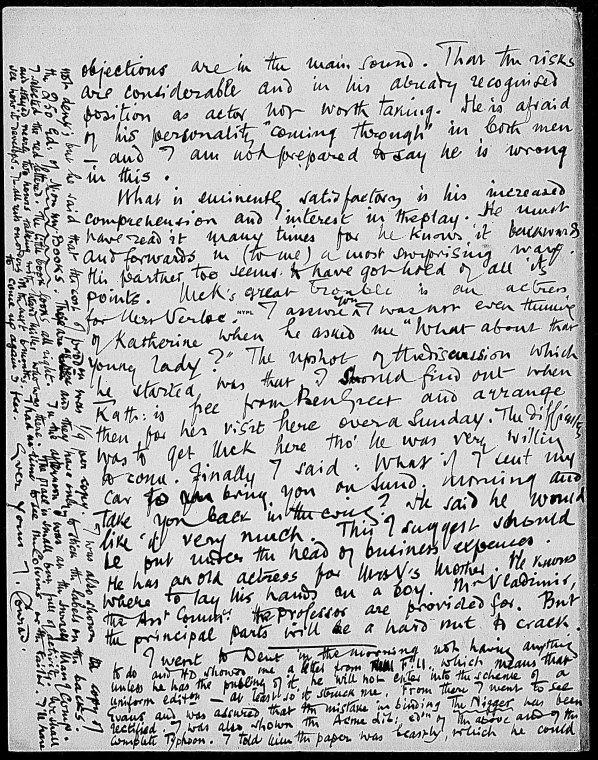 objections are in the main sound. That the risks
are considerable and in his already recognised
position as actor not worth taking. He is afraid
of his personality "coming through" in both men
— and I am not prepared to say he is wrong
in this.
What is eminently satisfactory is his increased
comprehension and interest in the play. He must
have read it many times for he knows it backwards
and forwards in (to me) a most surprising way.
His partner too seems to have got hold of all its
points. Uck's great trouble is an actress
for Mrs Verloc. NYPL I assure you I was not even thinking
of Katherine when he asked me "What about that
young lady?" The upshot of the discussion which
he started was that I should find out when
Kath: is free from Ben Greet and arrange
then for her visit here over a Sunday. The difficulty
was to get Uck here tho' he was very willing
to come. Finally I said: "What if I sent my
car to bring you on Sund. morning and
take you back in the
He said he would
like it very much. This I suggest should
be put under the head of business expences.
He has an old actress for Mrs V's mother. He knows
where to lay his hands on a boy. Mr Vladimir,
the Asst Commr: the professor are provided for. But
the principal parts will be a hard nut to crack.
I went to Dent in the morning not having anything
to do and HD showed me a letter from F.U. which means that
unless he has the publing of it he will not enter into the scheme of a
uniform editon — at least so it struck me. From there I went to see
Evans and was assured that the mistake in binding the Nigger has been
rectified. I was also shown the
edon of the above and of the
complete Typhoon. I told him the paper was beastly, which he could
not deny but he said that the cost of
was 1/9 per copy. I was also shown the copy of
the 8/50 Ed. of
my Books. There are
and they have only to stick the labels on the backs.
I selected the red lettered. The little book looks all right. In the afternoon I was at the Surrey
Comp.
and stayed nearly two hours talking with
who was there. The place is small but full of activity. We shall
see how it develops. It all will
in the next 6 months. I had no time to see McColvins or the
I'll have
to come up again I fear. Ever yours J. Conrad.